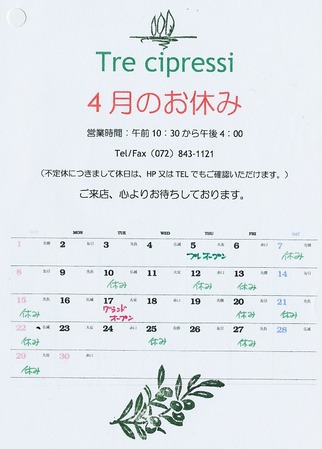 Tre cipressi
4月のお休み
営業時間：午前10：30から午後4：00
Tel/Fax（072）843-1121
（不定休につきまして休日は、HP又はTELでもご確認いただけます。）
ご来店、心よりお待ちしております。
MON TUE WED THU FRI SAT
1 2 3 4 5 6 7
プレオープン 休み
8 9 10 11 12 13 14
休み 休み 休み
15 16 17 18 19 20 21
休み グランド 休み 休み 休み
オープン
22 23 24 25 26 27 28
休み 休み 休み
29 30
休み